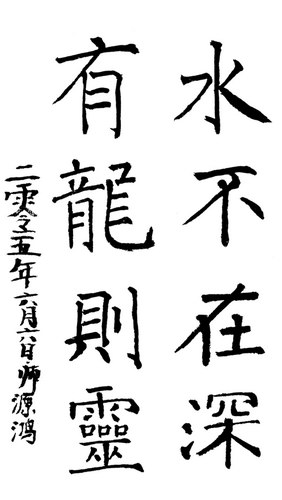 水不在深
有龍則靈
二零零五年六月六日師源鴻